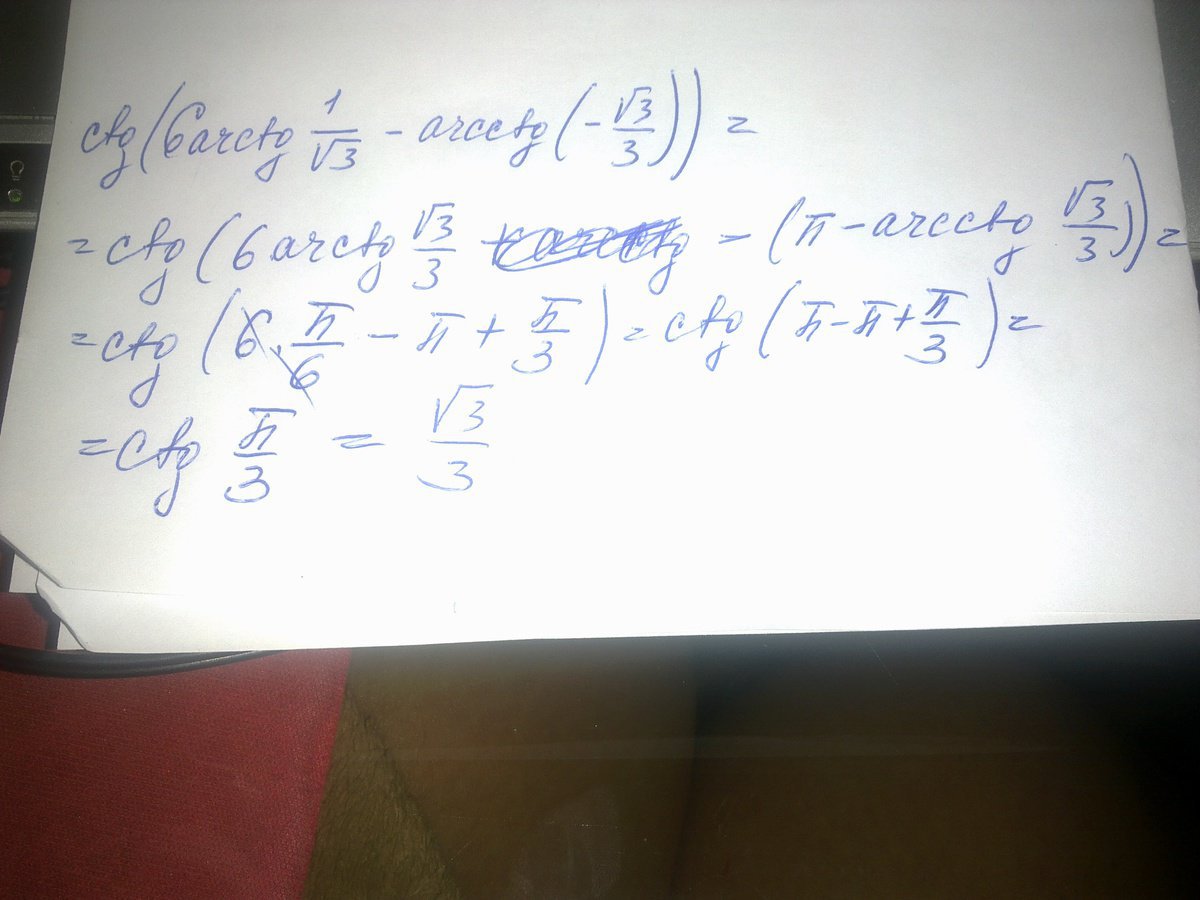 ctg(6arctg 1/√3 - arcctg(-√3/3)) =
= ctg(6arctg √3/3 - (π - arcctg √3/3)) =
= ctg(6 · π/6 - π + π/3) = ctg(π - π + π/3) =
= ctg π/3 = √3/3